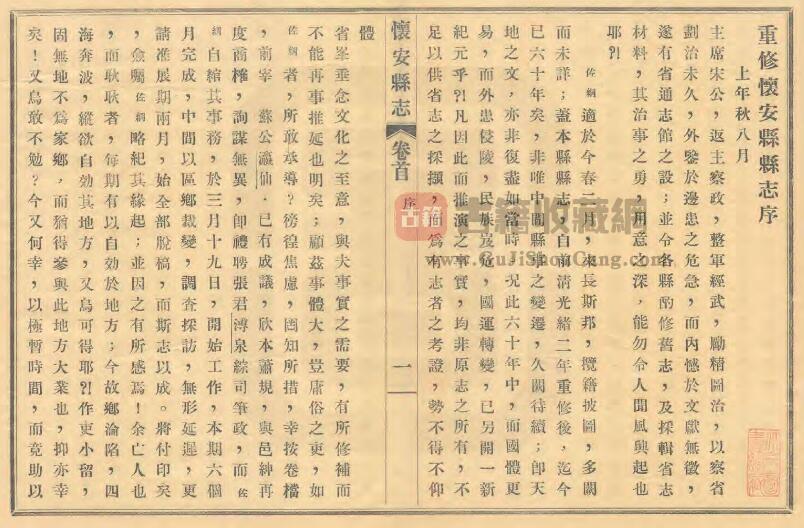 重修懷安縣縣志序
上年秋八月
主席宋公，返主察政，整軍經武，勵精圖治，以察省
劃治未久，外鑒於邊患之危急，而內憾於文獻無徵，
遂有省通志館之設；並令各縣酌修舊志，及採輯省志
材料，其治事之勇，用意之深，能勿令人聞風興起也
耶？！
佐綱適於今春二月，來長斯邦，攬籍披圖，多闕
而未詳；蓋本縣縣志，自前清光緒二年重修後，迄今
已六十年矣，非唯中間縣維之變遷，久闕待續；卽天
地之文，亦非復盡如當時，況此六十年中，而國體更
易，而外患侵陵，民族岌危，國運轉變，已另開一新
紀元乎？！凡因此而推演之事實，均非原志之所有，不
足以供省志之採擷，而爲有志者之考證，勢不得不仰
懷安縣志 卷首 序 一
體
省峯垂念文化之至意，與夫事實之需要，有所修補而
不能再事推延也明矣；顧茲事體大，豈庸俗之吏，如
佐綱者，所敢承導？徬徨焦慮，罔知所措，幸按卷檔
，前宰 蘇公瀛仙，已有成議，欣本蕭規，與邑紳再
度商榷，詢謀無異，卽禮聘張君溥泉綜司筆政，而佐
綱自綰其事務，於三月十九日，開始工作，本期六個
月完成，中間以區鄉裁變，調查採訪，無形延遲，更
請准展期兩月，始全部脫稿，而斯志以成。將付印矣
，僉囑佐綱略紀其緣起；並因之有所感焉！余亡人也
，而耿耿者，每期有以自効於地方；今故鄉淪陷，四
海奔波，縱欲自効其地方，又烏可得耶？！作吏小留，
固無地不爲家鄉，而猶得參與此地方大業也，抑亦幸
矣！又烏敢不勉？今又何幸，以極暫時間，而竟助以
古籍
古籍收藏網
www.GuJiShouCang.com